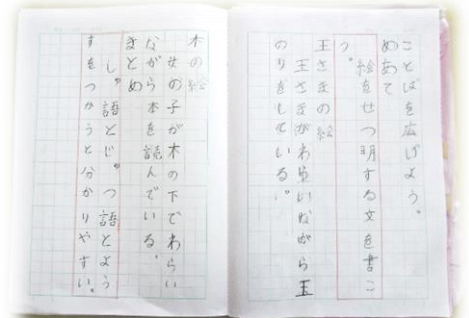 ことばを広げよう。
めあて
絵をせつ明する文を書こ
う。
王さまの絵
王さまがわらいながら玉
のりをしている。
木の絵
女の子が木の下でわらい
ながら本を読んでいる。
まとめ
しゅ語とじゅつ語とよう
すをつかうと分かりやすい。